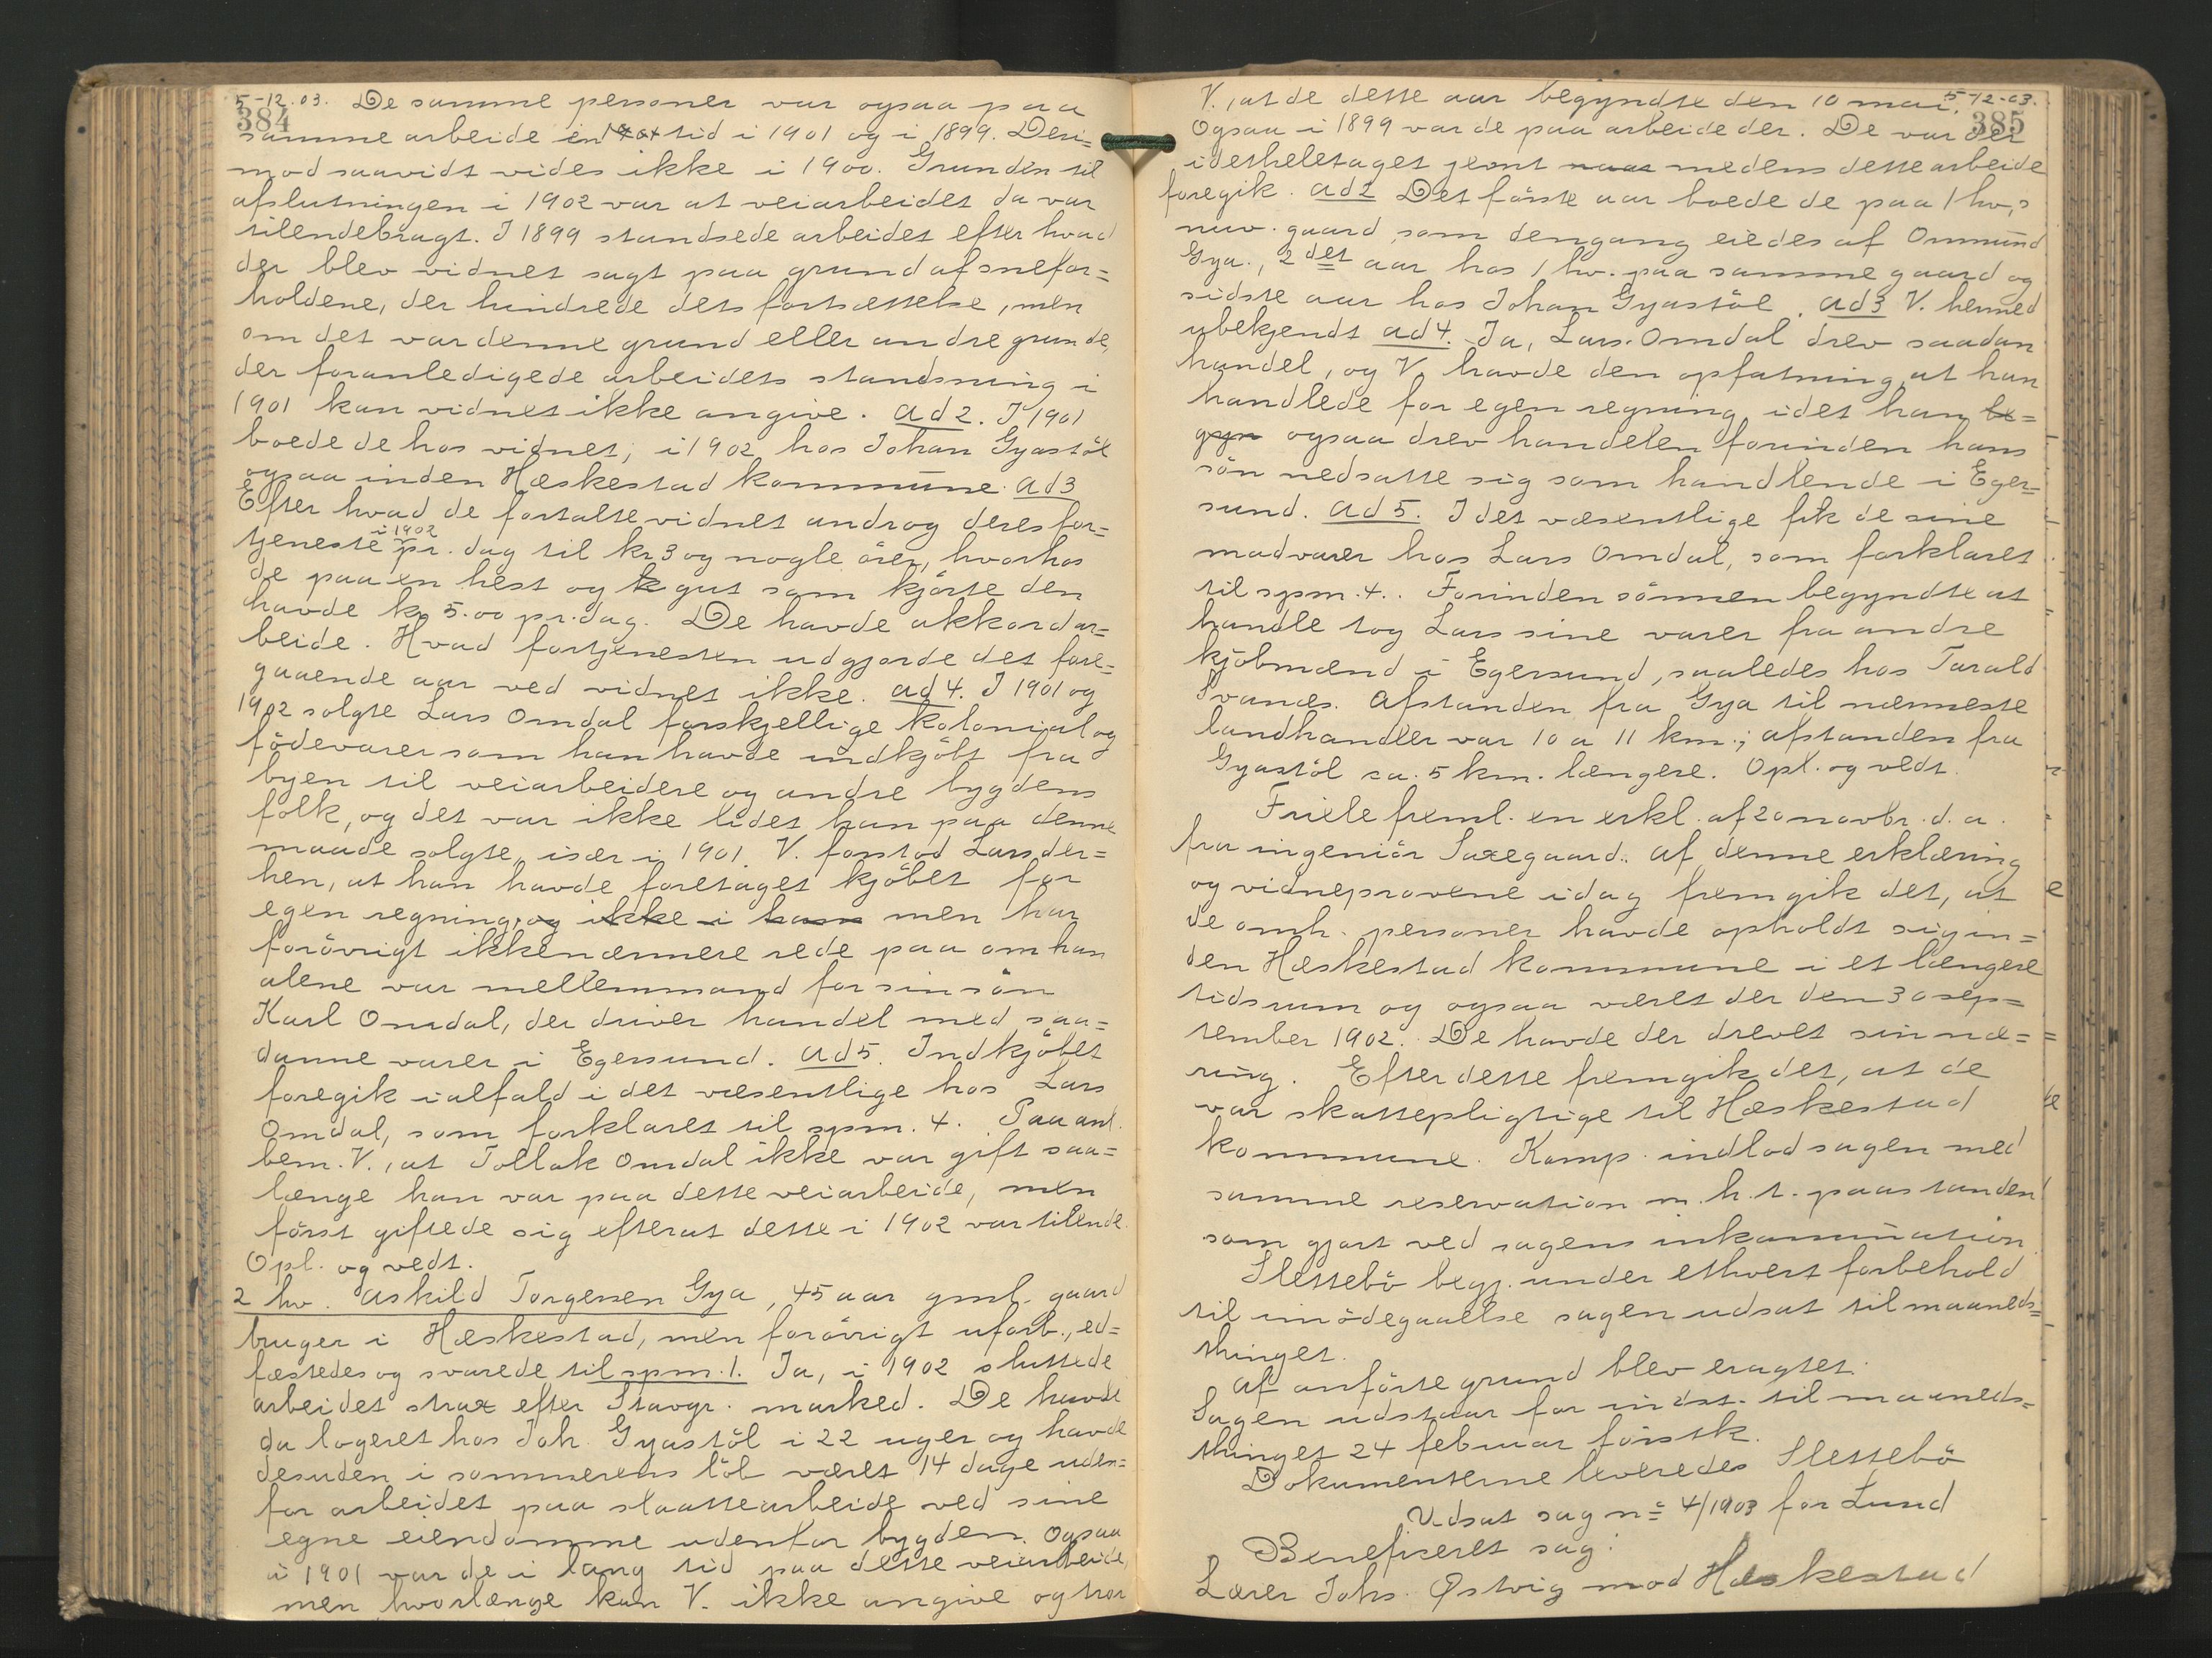 5-12.03. De samme personer var ogsaa paa
384
samme arbeide en tid i 1901 og i 1899. Deri=
mod saavidt vides ikke i 1900. Grunden til
afslutningen i 1902 var at veiarbeidet da var
tilendebragt. I 1899 standsede arbeidet efter hvad
der blev vidnet sagt paa grund af snefor=
holdene, der hindrede dets fortsættelse, men
om det var denne grund eller andre grunde,
der foranledigede arbeidets standsning i
1901 kan vidnet ikke angive. ad 2. I 1901
boede de hos vidnet; i 1902 hos Johan Gyastöl
ogsaa inden Hæskestad kommune. ad 3
Efter hvad de fortalte vidnet androg deres for=
tjeneste i 1902 pr. dag til kr 3 og nogle örer, hvorhos
de paa en hest og gut som kjörte den
havde kr 5.00 pr. dag. De havde akkordar=
beide. Hvad fortjenesten udgjorde det fore=
gaaende aar ved vidnet ikke. ad 4. I 1901 og
1902 solgte Lars Omdal forskjellige kolonial og
födevarer som han havde indkjöbt fra
byen til veiarbeidere og andre bygdens
folk, og det var ikke lidet han paa denne
maade solgte, især i 1901. V. forstod Lars der=
hen, at han havde foretaget kjöbet for
egen regning, og ikke i ham men har
forövrigt ikke nærmere rede paa om han
alene var mellemmand for sin sön
Karl Omdal, der driver handel med saa=
danne varer i Egersund. ad 5. Indkjöbet
foregik ialfald i det væsentlige hos Lars
Omdal, som forklaret til spm. 4. Paa anl.
bem. V., at Tollak Omdal ikke var gift saa=
længe han var paa dette veiarbeide, men
först giftede sig efterat dette i 1902 var tilende.
Opl. og vedt.
2 hv. Askild Torgersen Gya, 45 aar gml. gaard
bruger i Hæskestad, men forövrigt uforb., ed=
fæstedes og svarede til spm. 1. Ja, i 1902 sluttede
arbeidet strax efter Stavgr. marked. De havde
da logeret hos Joh. Gyastöl i 22 uger og havde
desuden i sommerens löb været 14 dage uden=
for arbeidet paa slaattearbeide ved sine
egne eiendomme udenfor bygden. Ogsaa
i 1901 var de i lang tid paa dette veiarbeide,
men hvorlænge kan V. ikke angive og tror
V., at de dette aar begyndte den 10 mai. 5-12-03.
385
Ogsaa i 1899 var de paa arbeide der. De var der
idetheletaget jevnt naar medens dette arbeide
foregik. ad 2 Det förste aar boede de paa 1 hv,s
nuv. gaard, som dengang eiedes af Ommund
Gya, 2det aar hos 1 hv. paa samme gaard og
sidste aar hos Johan Gyastöl. ad 3 V. hermed
ubekjendt ad 4. Ja, Lars Omdal drev saadan
handel, og V. havde den opfatning, at han
handlede for egen regning, idet han be=
gyn ogsaa drev handelen forinden hans
sön nedsatte sig som handlende i Eger=
sund. ad 5. I det væsentlige fik de sine
madvarer hos Lars Omdal, som forklaret
til spm. 4. Forinden sönnen begyndte at
handle tog Lars sine varer fra andre
kjöbmænd i Egersund, saaledes hos Tarald
Svanes. Afstanden fra Gya til nærmeste
landhandler var 10 a 11 km.; afstanden fra
Gyastöl ca. 5 km. længere. Opl. og vedt.
Friele freml. en erkl. af 20 novbr. d. a.
fra ingeniör Saxegaard. Af denne erklæring
og vidneprovene idag fremgik det, at
de omh. personer havde opholdt sig in=
den Hæskestad kommune i et længere
tidsrum og ogsaa været der den 30 sep=
tember 1902. De havde der drevet sin næ=
ring. Efter dette fremgik det, at de
var skattepligtige til Hæskestad
kommune. Komp. indlod sagen med
samme reservation m. h. t. paastanden
som gjort ved sagens inkamination.
Slettebö begj. under ethvert forbehold
til imödegaaelse sagen udsat til maaneds=
thinget.
Af anförte grund blev eragtet:
Sagen udstaar for indst. til maaneds=
thinget 24 februar förstk.
Dokumenterne leveredes Slettebö
Udsat sag no 4/1903 for Lund
Beneficeret sag:
Lærer Johs. Østvig mod Hæskestad